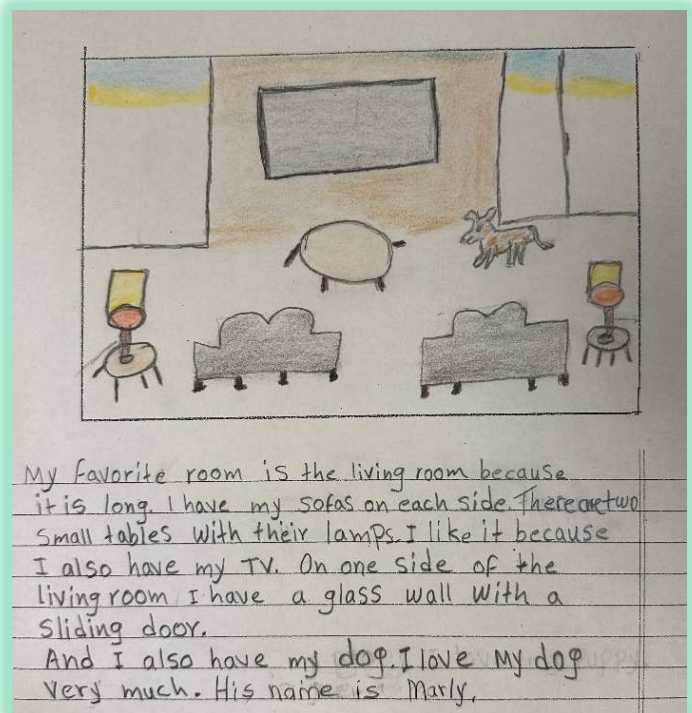 My favorite room is the living room because
it is long. I have my sofas on each side. There are two
small tables with their lamps. I like it because
I also have my TV. On one side of the
living room I have a glass wall with a
sliding door.
And I also have my dog. I love my dog
very much. His name is Marly.